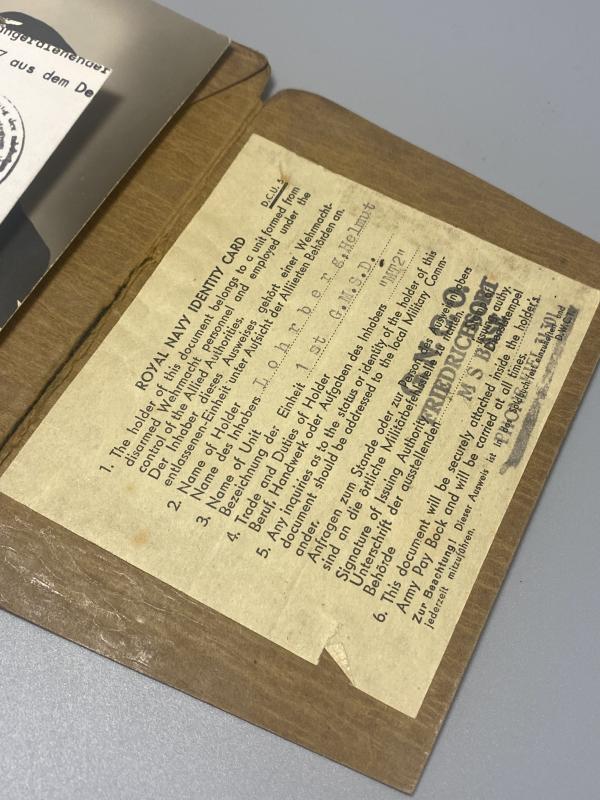 7 aus dem De
D.C.U. 5
ROYAL NAVY IDENTITY CARD
1. The holder of this document belongs to a unit formed from
disarmed Wehrmacht personnel and employed under the
control of the Allied Authorities.
Der Inhaber dieses Ausweises gehört einer Wehrmacht-
entlassenen-Einheit unter Aufsicht der Alliierten Behörden an.
2. Name of Holder
Name des Inhabers Lohrberg, Helmut
3. Name of Unit
Bezeichnung der Einheit 1st G.M.S.D.
4. Trade and Duties of Holder
Beruf, Handwerk oder Aufgaben des Inhabers "MT2"
5. Any inquiries as to the status or identity of the holder of this
document should be addressed to the local Military Comm-
ander.
Anfragen zum Stande oder zur Person des Ausweisinhabers
sind an die örtliche Militärbetehlsstelle zu richten.
Signature of Issuing Authority
Unterschrift der ausstellenden
Behörde
FRIEDRICHSORT
M S
6. This document will be securely attached inside the holder's
Army Pay Book and will be carried at all times.
Zur Beachtung! Dieser Ausweis ist
jederzeit mitzuführen.